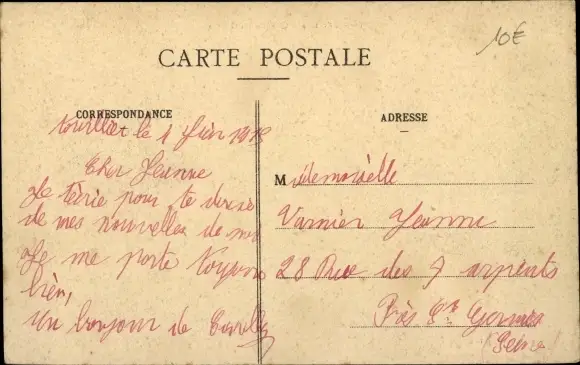 10€
CARTE POSTALE
CORRESPONDANCE
le 1 Juin 1918
Cher Jeanne
Je técrie pour te donné
de mes nouvelles de
Je me porte toujours
bien,
un bonjour de
ADRESSE
Mademoiselle
Varnier Jeanne
28 Rue des 7 arpents
Près St Gervais
(Seine)